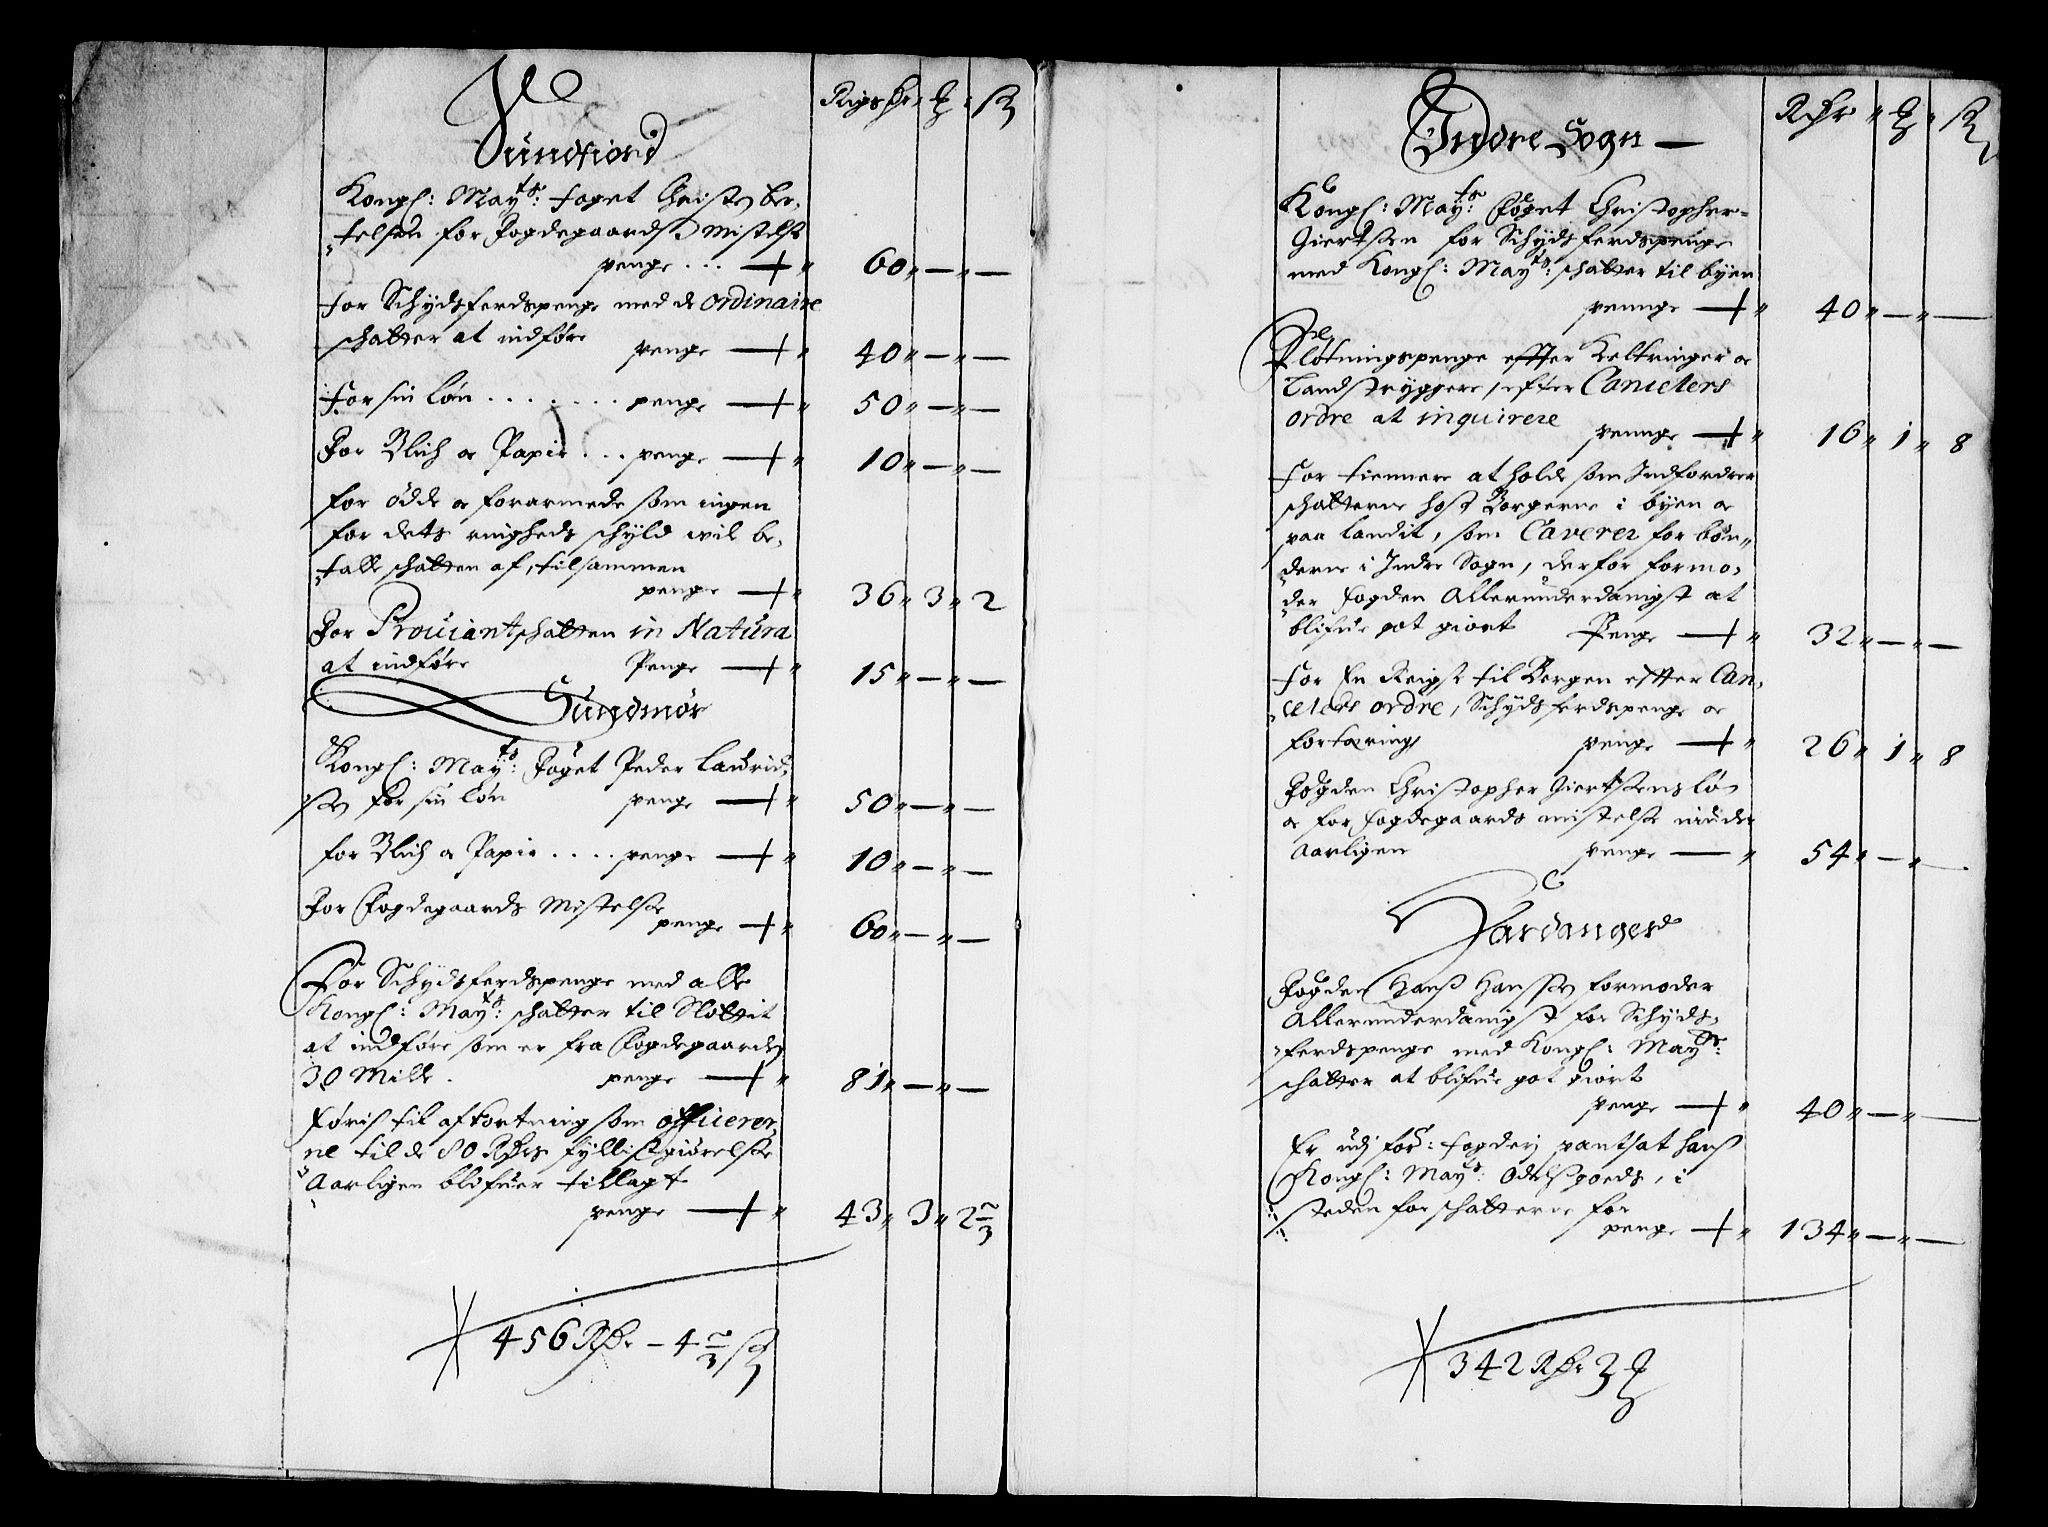 Sundfiord
Rigsdr
Kongl: Mayts: foget Christen Ber-
telsen for Fogdegaardss Mistelse
penge ... 60 " — " —
for Schydsferdspenge med de ordinaire
schatter at indføre penge 40 " — " —
for sin løn . . . . . . . penge 50 " — " —
For Blich oc Papir . . . penge 10 " — " —
for ødde oc forarmede som ingen
for dets ringheds schyld wil be-
talle schatten af, tilsammen
penge 36 " 3 " 2
For Prouiantschatten in Natura
at indføre Penge 15 " — " —
Sundmør
Kongl: Mayts: Foget Peder Laurid-
sen for sin løn penge 50 " — " —
for Blich oc Papir . . . . penge 10 " — " —
For Fogdegaards Mistelse
penge 60 " — " —
For Schydsferdspenge med alle
Kongl: Mayts: schatter til Slottit
at indføre som er fra Fogdegaarden
30 Mille . penge 81 " — " —
Føris til afkortning som officerer-
ne til de 80 Rdrs fyllistgiørelse
Aarligen blifuer tillagt
penge 43 " 3 " 2 2/3
456 Rdr — 4 2/3 sk
Indre Sogn —
Rdr
Kongl: Mayts: Foget Christopher
Giertsen for Schydsferdspenge
med Kongl: Mayts: schatter til byen
pennge 40 " — " —
fløtningspenge effter Keltringer oc
Landstryggere, efter Canselers
ordre at inquirere
pennge 16 " 1 " 8
for tiennere at holde som Indfordrer
schatterne hoss Borgerne i byen oc
paa landit, som Caverer for bøn-
derne i Indre Sogn, derfor formo-
der fogden Allerunderdanigst at
blifue got giort Penge 32 " — " —
for En Reigse til Bergen effter Can-
celers ordre, Schydsferdspenge oc
fortæring penge 26 " 1 " 8
Fogden Christopher Giertsens løn
oc for fogdegaards mistelse
Aarligen penge 54 " — " —
Hardanger
Fogden Hans Hanssen formoder
Allerunderdanigst for Schyds-
ferdspenge med Kongl: Mayts:
schatter at blifue got giort
penge 40 " — " —
Er udj for: fogderj pantsat hans
Kongl: Mayts: Odelsgoeds, i
steden for schatterne for
penge 134 " — " —
342 Rdr 3